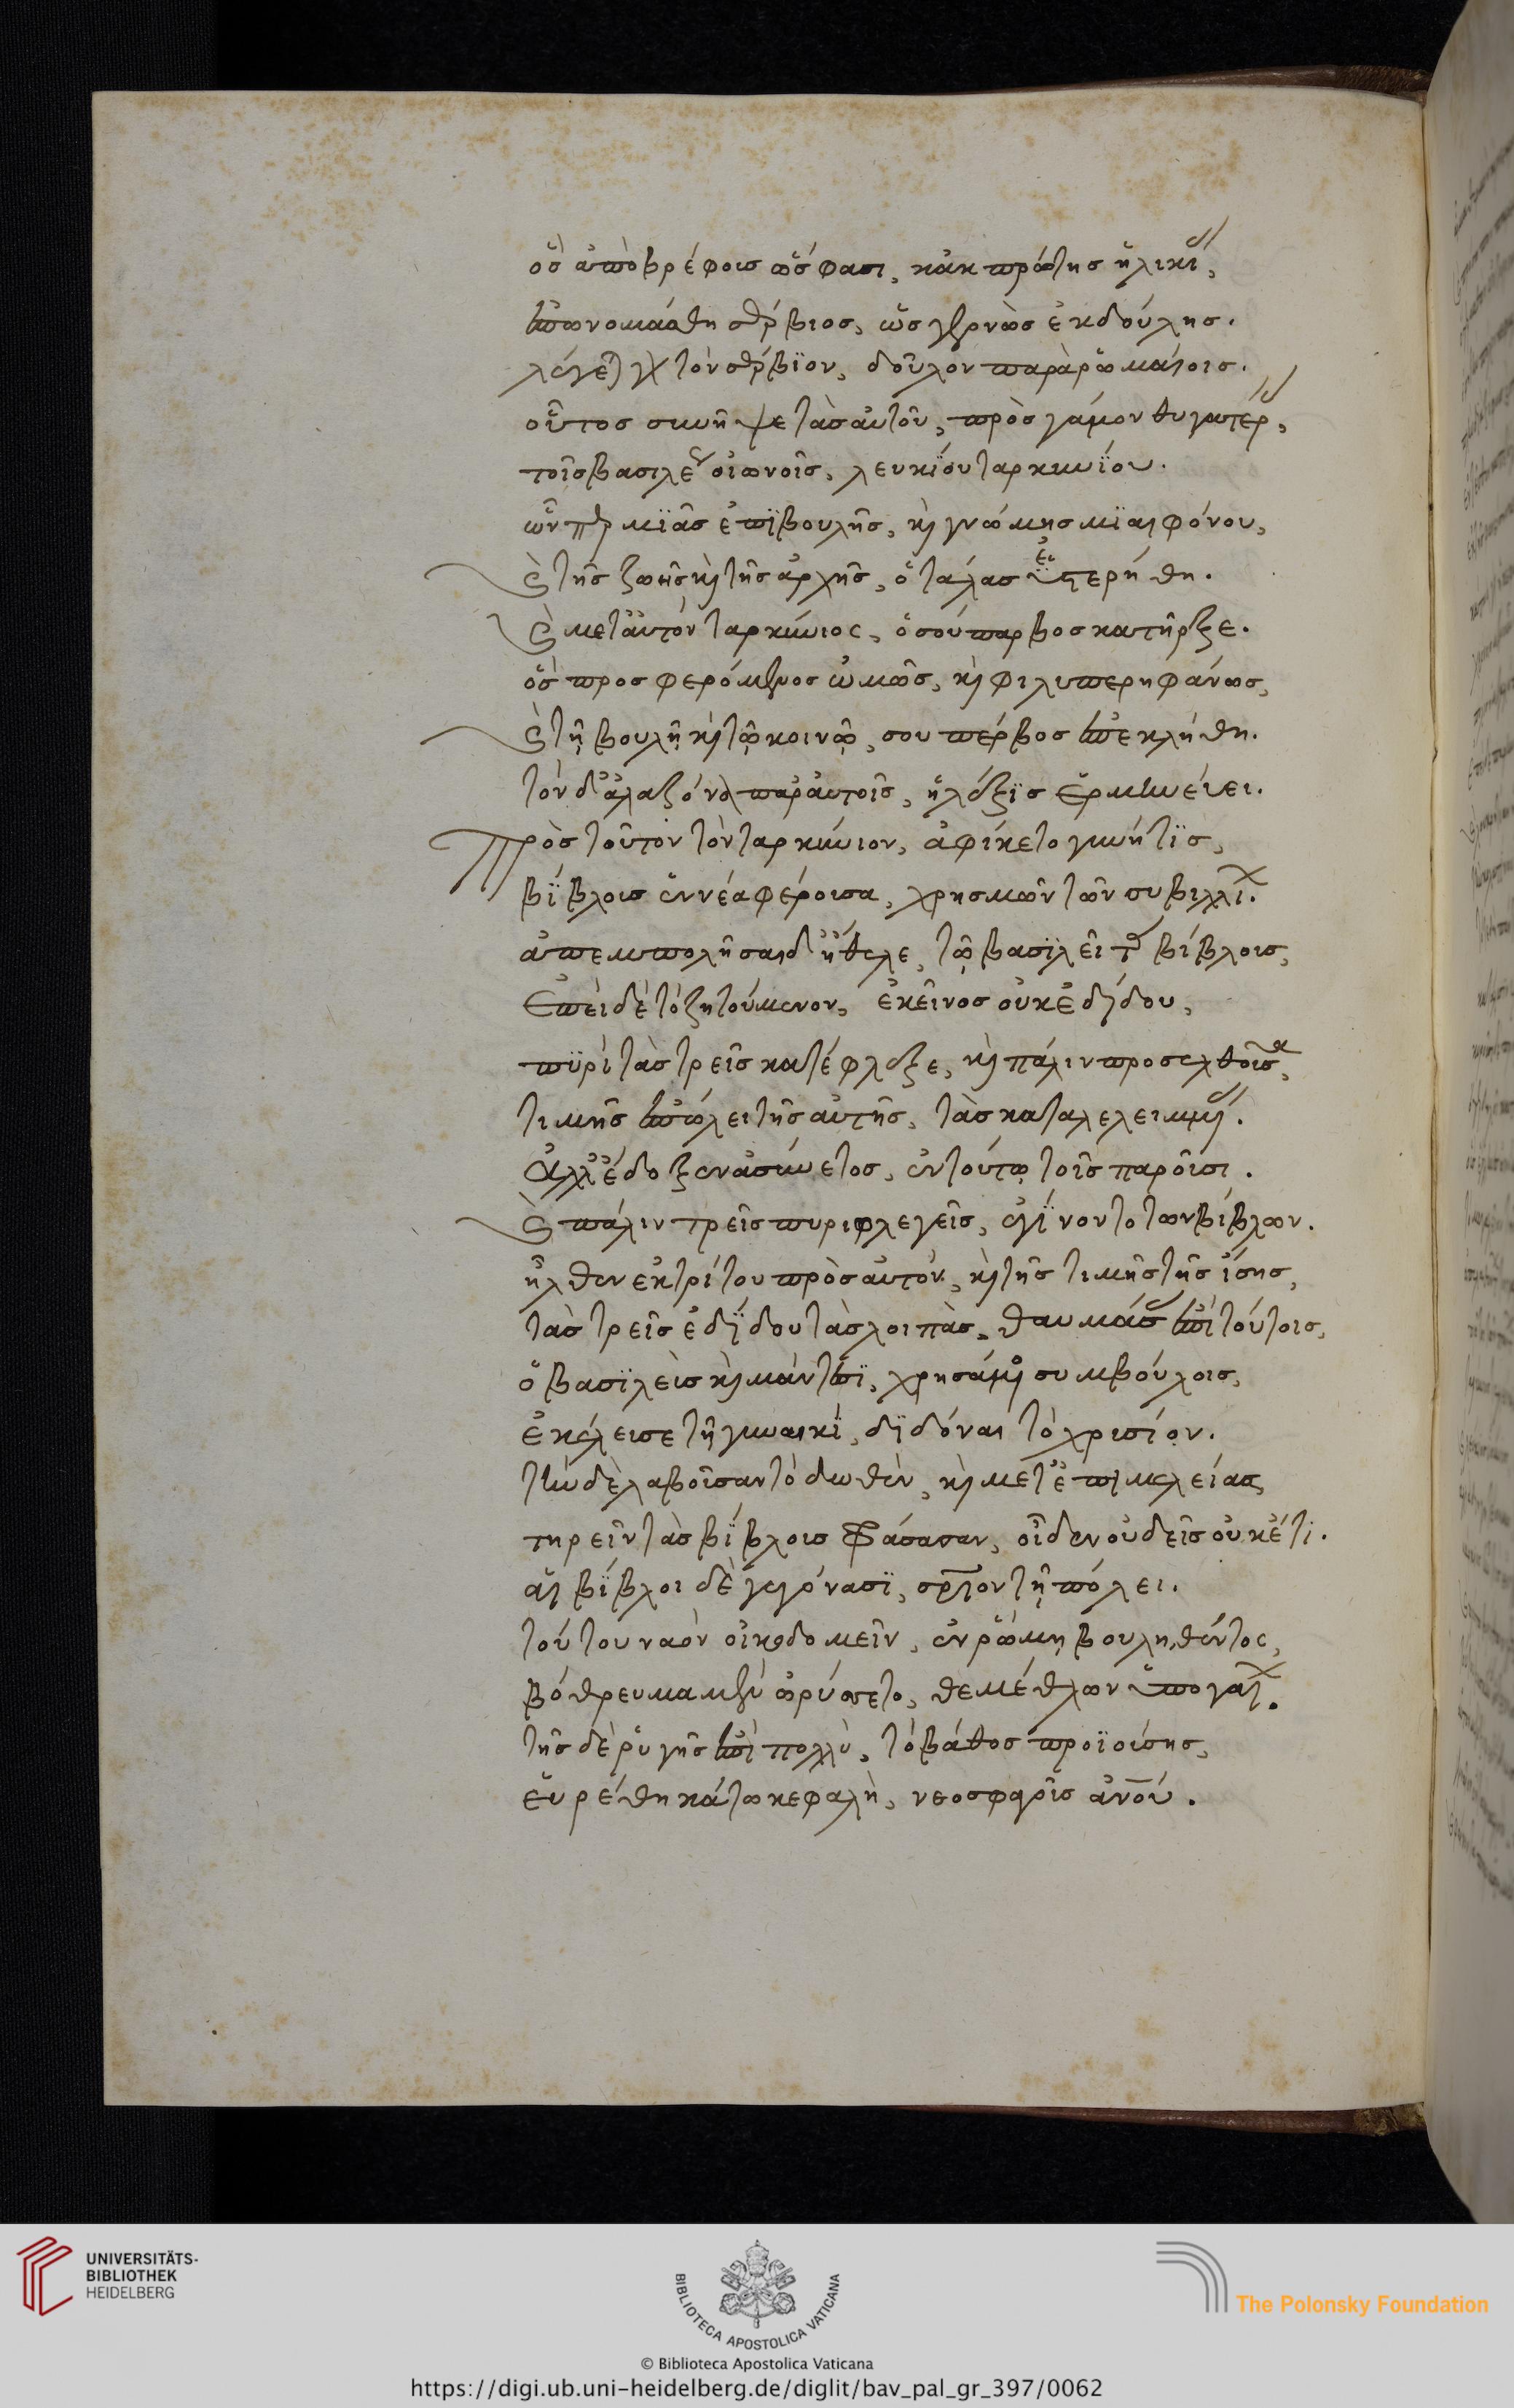 ὃς ἀπὸ βρέφους ὥς φασι, κἀκ πρώτης ἡλικίας,
ἐπωνομάσθη σέρβιος, ὡς γεγονὼς ἐκ δούλης.
λέγεται γὰρ τὸν σέρβϊον, δοῦλον παρὰ ῥωμαίοις.
οὗτος συνῆψε τὰς αὐτοῦ, πρὸς γάμον θυγατέρας,
τοῖς βασιλέως υἱωνοῖς, λευκΐου ταρκυνΐου.
ὧνπερ μϊᾶς ἐπϊβουλῆς, καὶ γνώμης μϊαιφόνου,
καὶ τῆς ζωῆς καὶ τῆς ἀρχῆς, ὁ τάλας ἐστερήθη.
καὶ μετ' αὐτὸν ταρκύνιος, ὁ σούπαρβος κατῆρξε.
ὃς προσφερόμενος ὠμῶς, καὶ φιλυπερηφάνως,
καὶ τῇ βουλῇ καὶ τῷ κοινῷ, σουπέρβος ἐπεκλήθη.
τὸν δ' ἀλαζόνα παρ' αὐτοῖς, ἡ λέξϊς ἑρμηνεύει.
Πρὸς τοῦτον τὸν ταρκύνιον, ἀφίκετο γυνή τϊς,
βΐβλους ἐννέα φέρουσα, χρησμῶν τῶν συβιλλείων.
ἀπεμπολῆσαι δ' ἤθελε, τῷ βασϊλεῖ τὰς βίβλους,
Ἐπεὶ δὲ τὸ ζητούμενον, ἐκεῖνος οὐκ ἐδίδου,
πϋρὶ τὰς τρεῖς κατέφλεξε, καὶ πάλιν προσελθοῦσα,
τιμῆς ἐπώλει τῆς αὐτῆς, τὰς καταλελειμμένας.
Ἀλλ' ἔδοξεν ἀσύνετος, ἐν τούτῳ τοῖς παροῦσι.
καὶ πάλιν τρεῖς πυριφλεγεῖς, ἐγΐνοντο τῶν βίβλων.
ἦλθεν ἐκ τρίτου πρὸς αὐτὸν, καὶ τῆς τιμῆς τῆς ἴσης,
τὰς τρεῖς ἐδΐδου τὰς λοιπὰς. θαυμάσας ἐπὶ τούτοις,
ὁ βασϊλεὺς καὶ μάντεσϊ, χρησάμενος συμβούλοις,
ἐκέλευσε τῇ γυναικὶ, δϊδόναι τὸ χρυσίον.
τὴν δὲ λαβοῦσαν τὸ δωθὲν, καὶ μετ' ἐπιμελείας
τηρεῖν τὰς βΐβλους φάσασαν, οἶδεν οὐδεῖς οὐκέτϊ.
αἱ βΐβλοι δὲ γεγόνασϊ, σωτήριον τῇ πόλει.
τούτου ναὸν οἰκοδομεῖν, ἐν ῥώμῃ βουληθέντος,
βόθρευμα μὲν ὠρύσσετο, θεμέθλων ὑπογαίων.
τῆς δὲ ῥυγῆς ἐπὶ πολλὺ, τὸ βάθος προϊούσης,
εὑρέθη κάτω κεφαλὴ, νεοσφαγοῦς ἀνου.
UNIVERSITÄTS-
BIBLIOTHEK
HEIDELBERG
BIBLIOTECA APOSTOLICA VATICANA
The Polonsky Foundation
© Biblioteca Apostolica Vaticana
https://digi.ub.uni-heidelberg.de/diglit/bav_pal_gr_397/0062